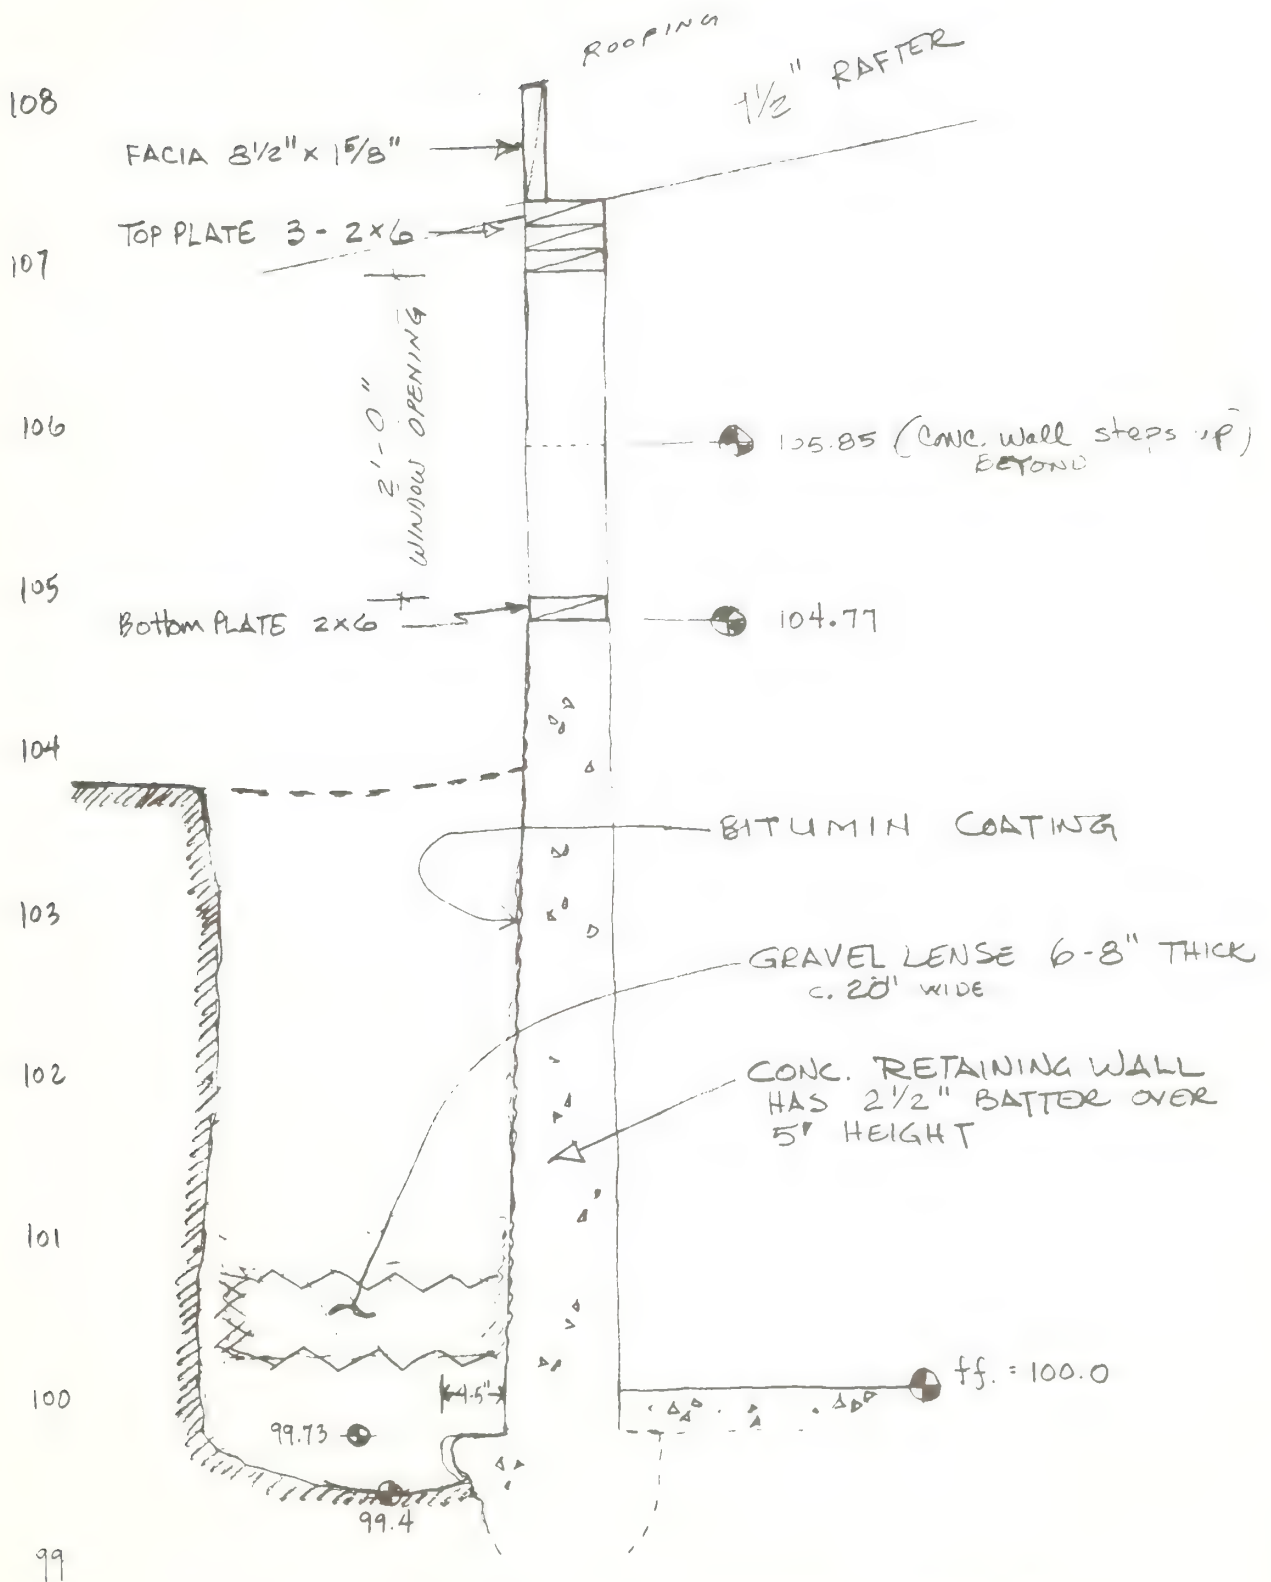 ROOFING
1½" RAFTER
108
FACIA 8½" x 1⅝"
TOP PLATE 3 - 2x6
107
2'-0"
WINDOW OPENING
106
105.85 (CONC. Wall steps up)
BEYOND
105
Bottom PLATE 2x6
104.77
104
BITUMIN COATING
103
GRAVEL LENSE 6-8" THICK
c. 20" WIDE
102
CONC. RETAINING WALL
HAS 2½" BATTER OVER
5' HEIGHT
101
ff. = 100.0
100
99.73
99.4
99